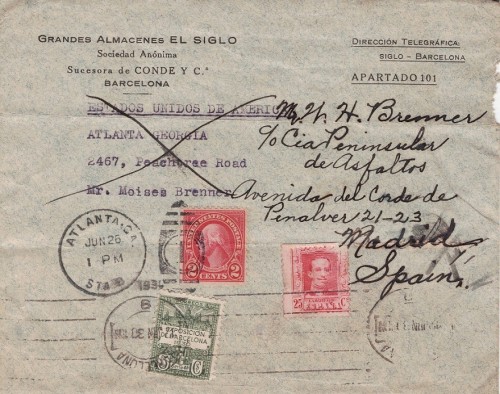 GRANDES ALMACENES EL SIGLO
Sociedad Anónima
Sucesora de CONDE Y C.ª
BARCELONA
DIRECCIÓN TELEGRÁFICA:
SIGLO - BARCELONA
APARTADO 101
ESTADOS UNIDOS DE AMERIC
ATLANTA GEORGIA
2467, Peachorae Road
Mr. Moises Brenner
Mr. W. H. Brenner
c/o Cia Peninsular
de Asfaltos
Avenida del Corde de
Penalver 21-23
Madrid
Spain
ATLANTA, GA.
JUN 26
1 PM
STA
193
UNITED STATES POSTAGE
2 2
CENTS
25 Cs
ESPAÑA
EXPOSICION
DE BARCELONA
5 Cs
B